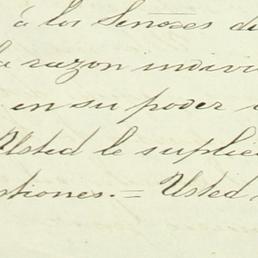 á los Señores de
la razon indivi
en su poder
Usted le suplic
stiones.= Usted